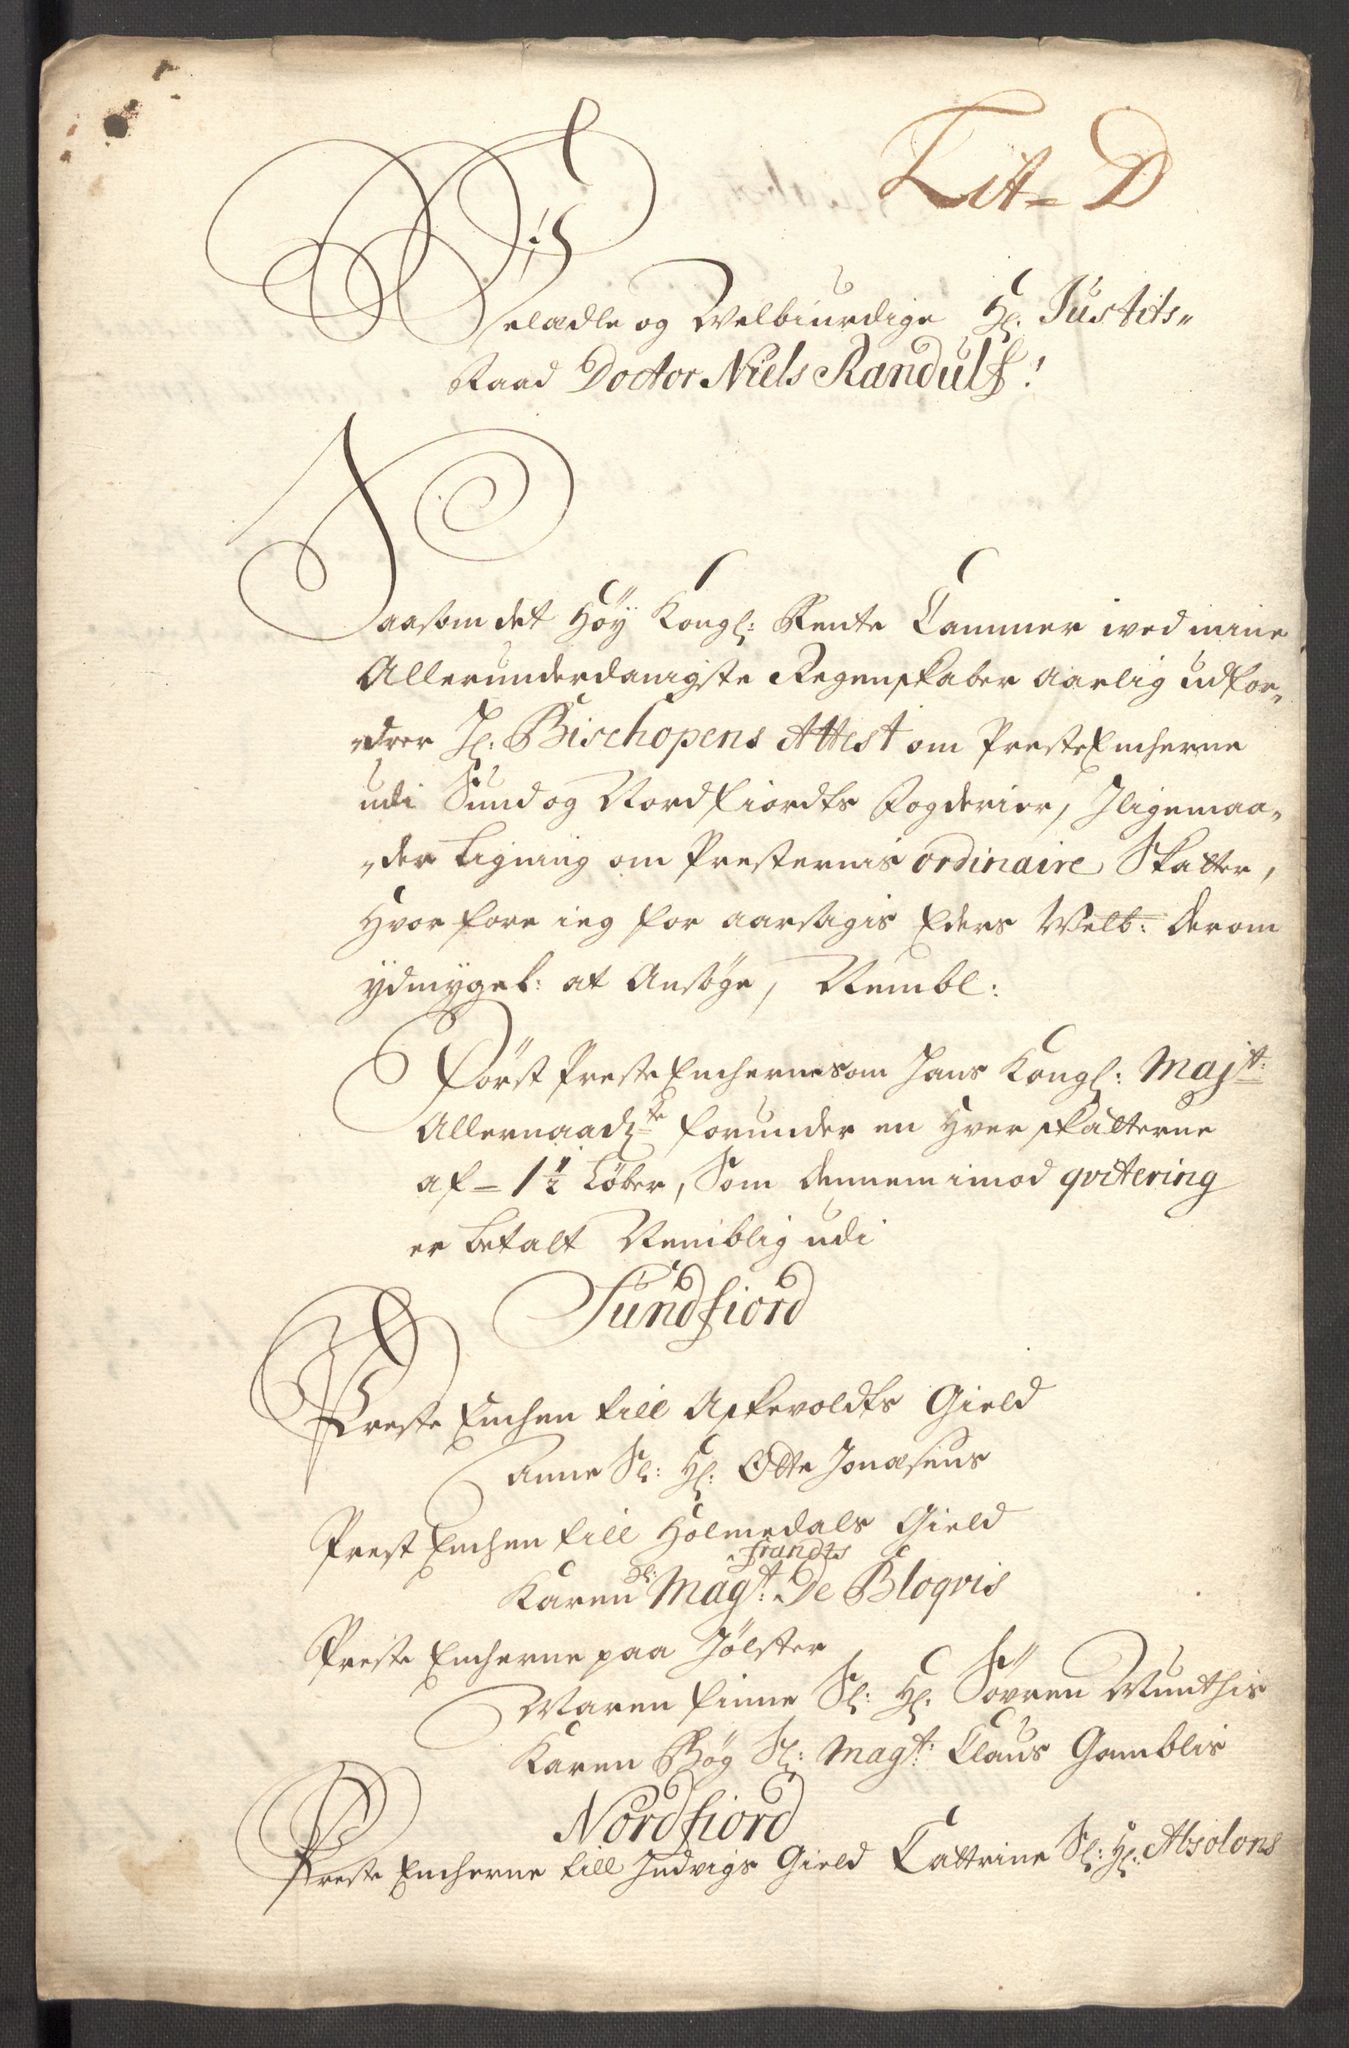 Lit= D
Veladle og Welbiurdige Hr: Justits„
Raad Doctor Niels Randulf!
Saasom det Høy Kongl: Rente Cammer wed mine
Allerunderdanigste Regenskaber Aarlig udfor„
„drer Hr: Bischopens Attest om PresteEncherne
udi Sund og Nordfiordts Fogderier, Iligemaa„
„der Ligning om Presternis ordinaire Skatter,
Hvorfore ieg for aarsagis Eders Welb: derom
ydmygel: at Ansøge, Nembl:
Först PresteEncherne som Hans Kongl: Majt:
Allernaadste forunder en hver skatterne
af - 1½ Löber, Som dennem imod qvitering
er betalt Nemblig udi
Sundfiord
Preste Enchen till Askevoldts Gield
Anne Sl: Hr: Otte Jonæsens
Prest Enchen till Holmedals Gield
frandts
Karen Sl: Magt: De Bloqvis
Preste Encherne paa Jölster
Maren finne Sl: Hr: Sövren Munthis
Karen Bøg Sl: Magt: Claus Gamblis
Nordfiord
Preste Encherne till Indvigs Gield Cattrine Sl: Hr: Absolons